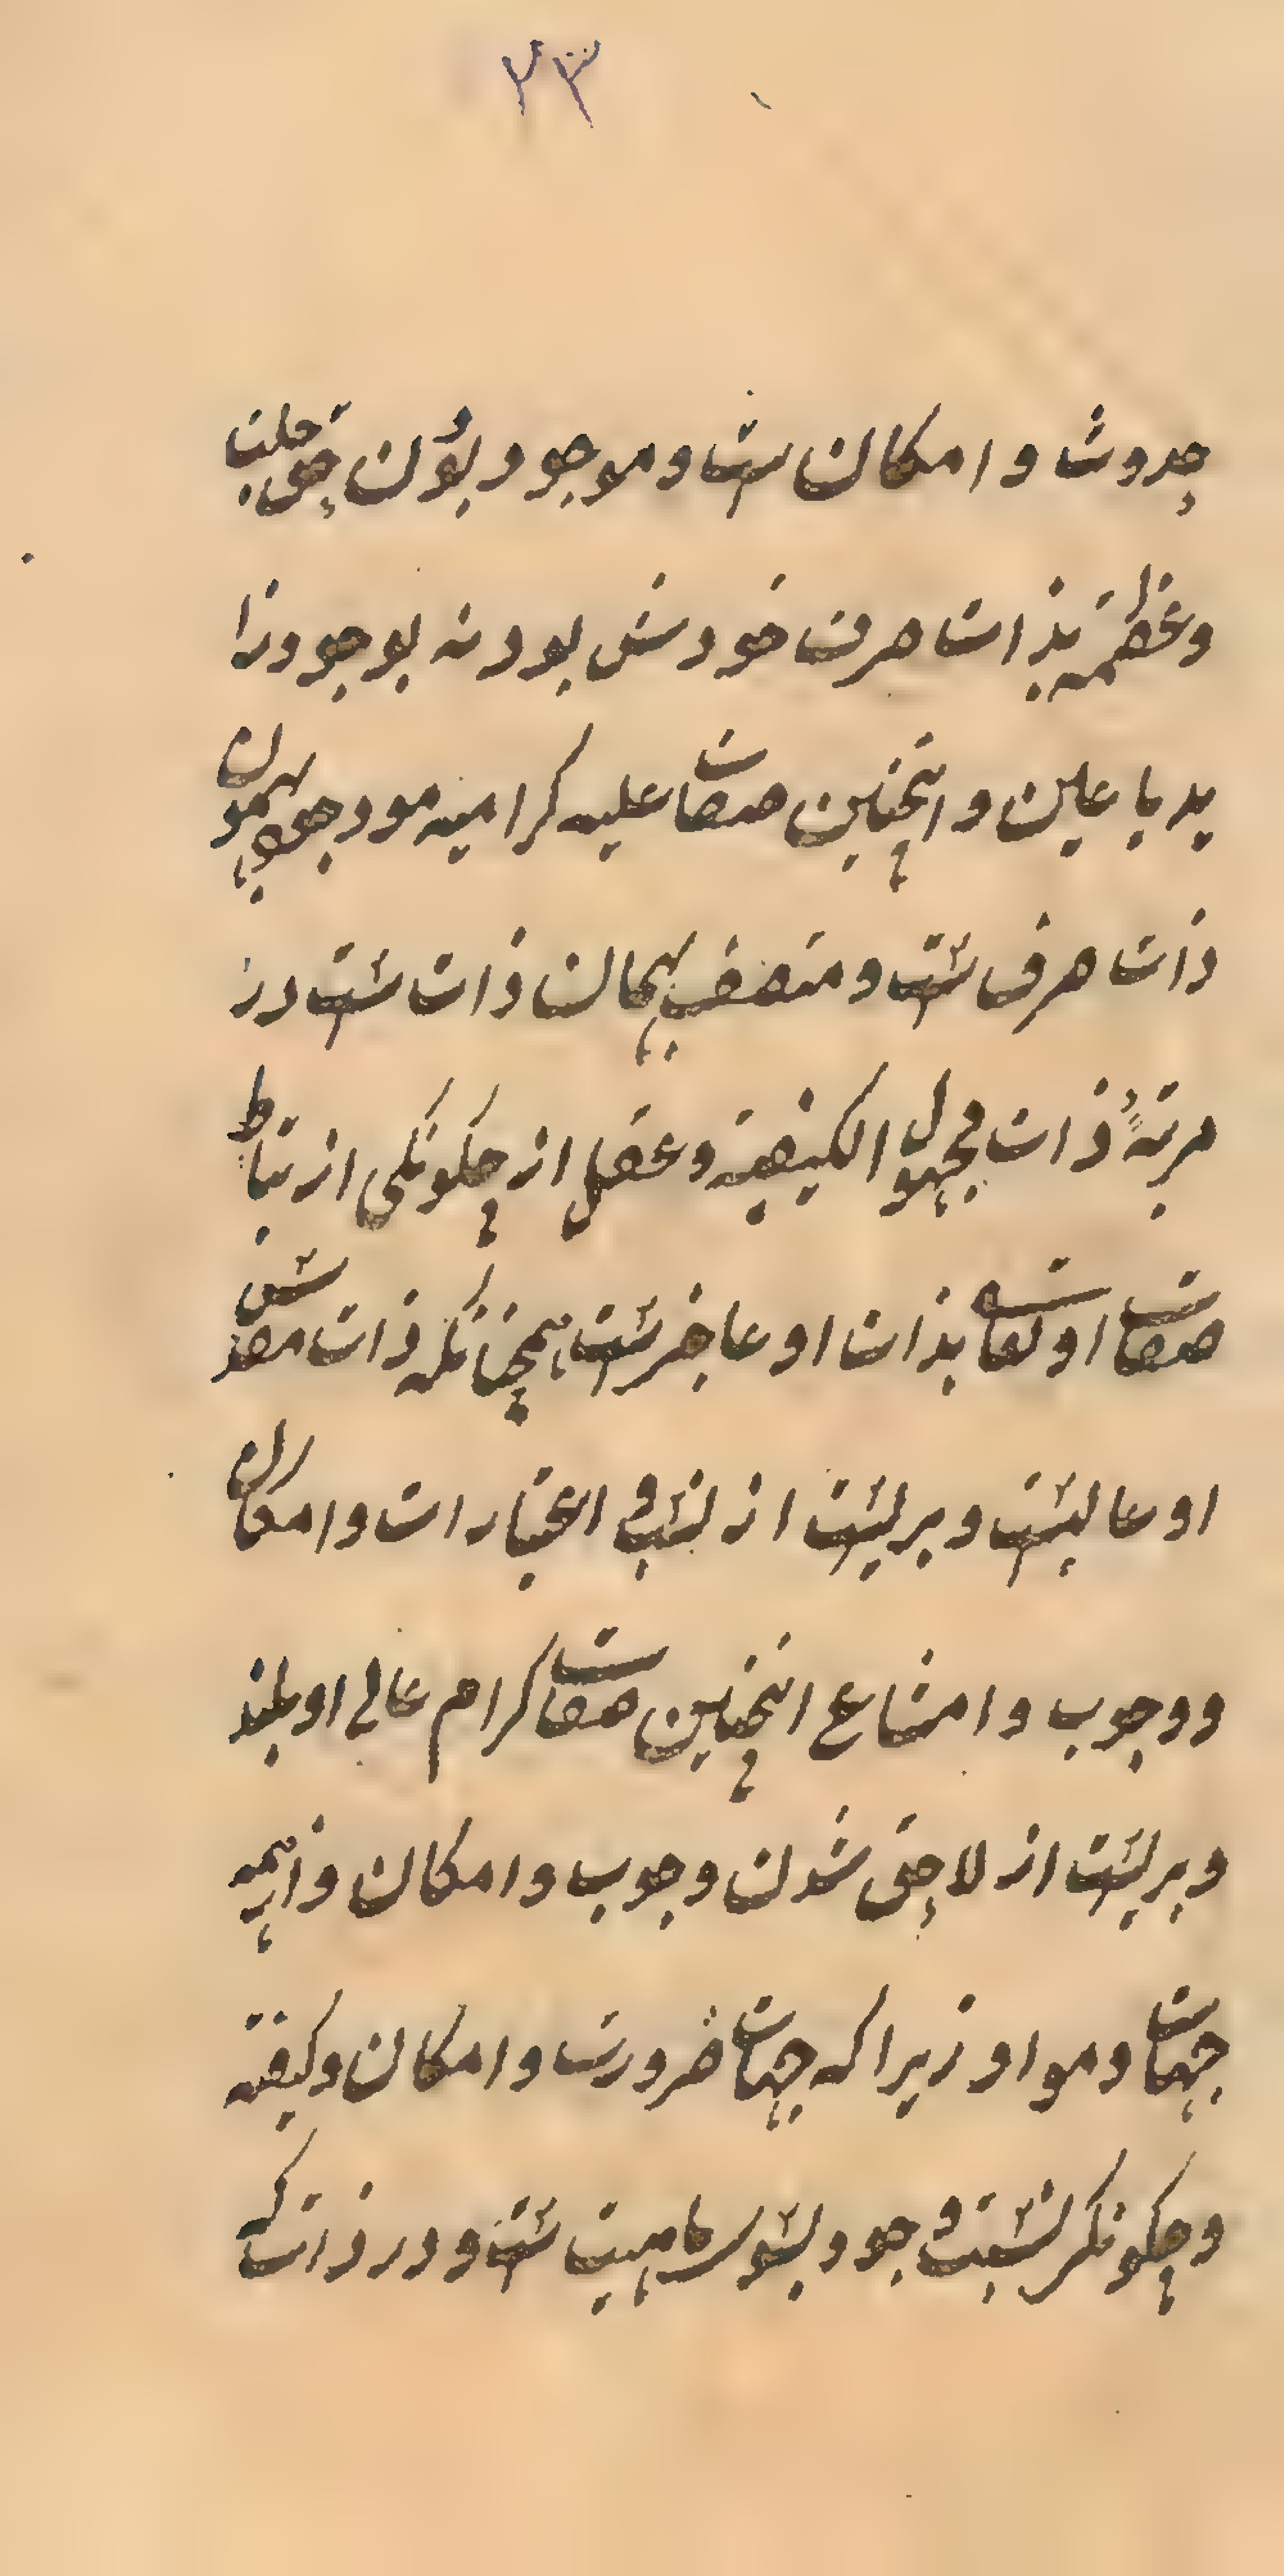 ۲۳
حدوث و امکان ست و موجود بودن حق جلت
وعظمته بذات صرف خودش بود نه بوجود زا
ید یا عین و انچنین صفات علیه کرامیه موجود بهمون
ذات صرف ست و متصف بهمان ذات ست در
مرتبهٔ ذات مجهول الکیفیة و عقل از چکونکی ارتباط
صفات او تعالی بذات او عاجزست همچنانکه ذات مقدسش
او عالیست و بریست از نسب و اعتبارات و امکان
و وجوب و امتناع انچنین صفات کرام عالی او بلند
و بریست از لاحق شدن وجوب و امکان و از همه
جهات و مواد زیرا که جهات ضرورت و امکان و کیفیته
و چکونکی نسبت وجود بسوی ماهیت ست و در ذات که